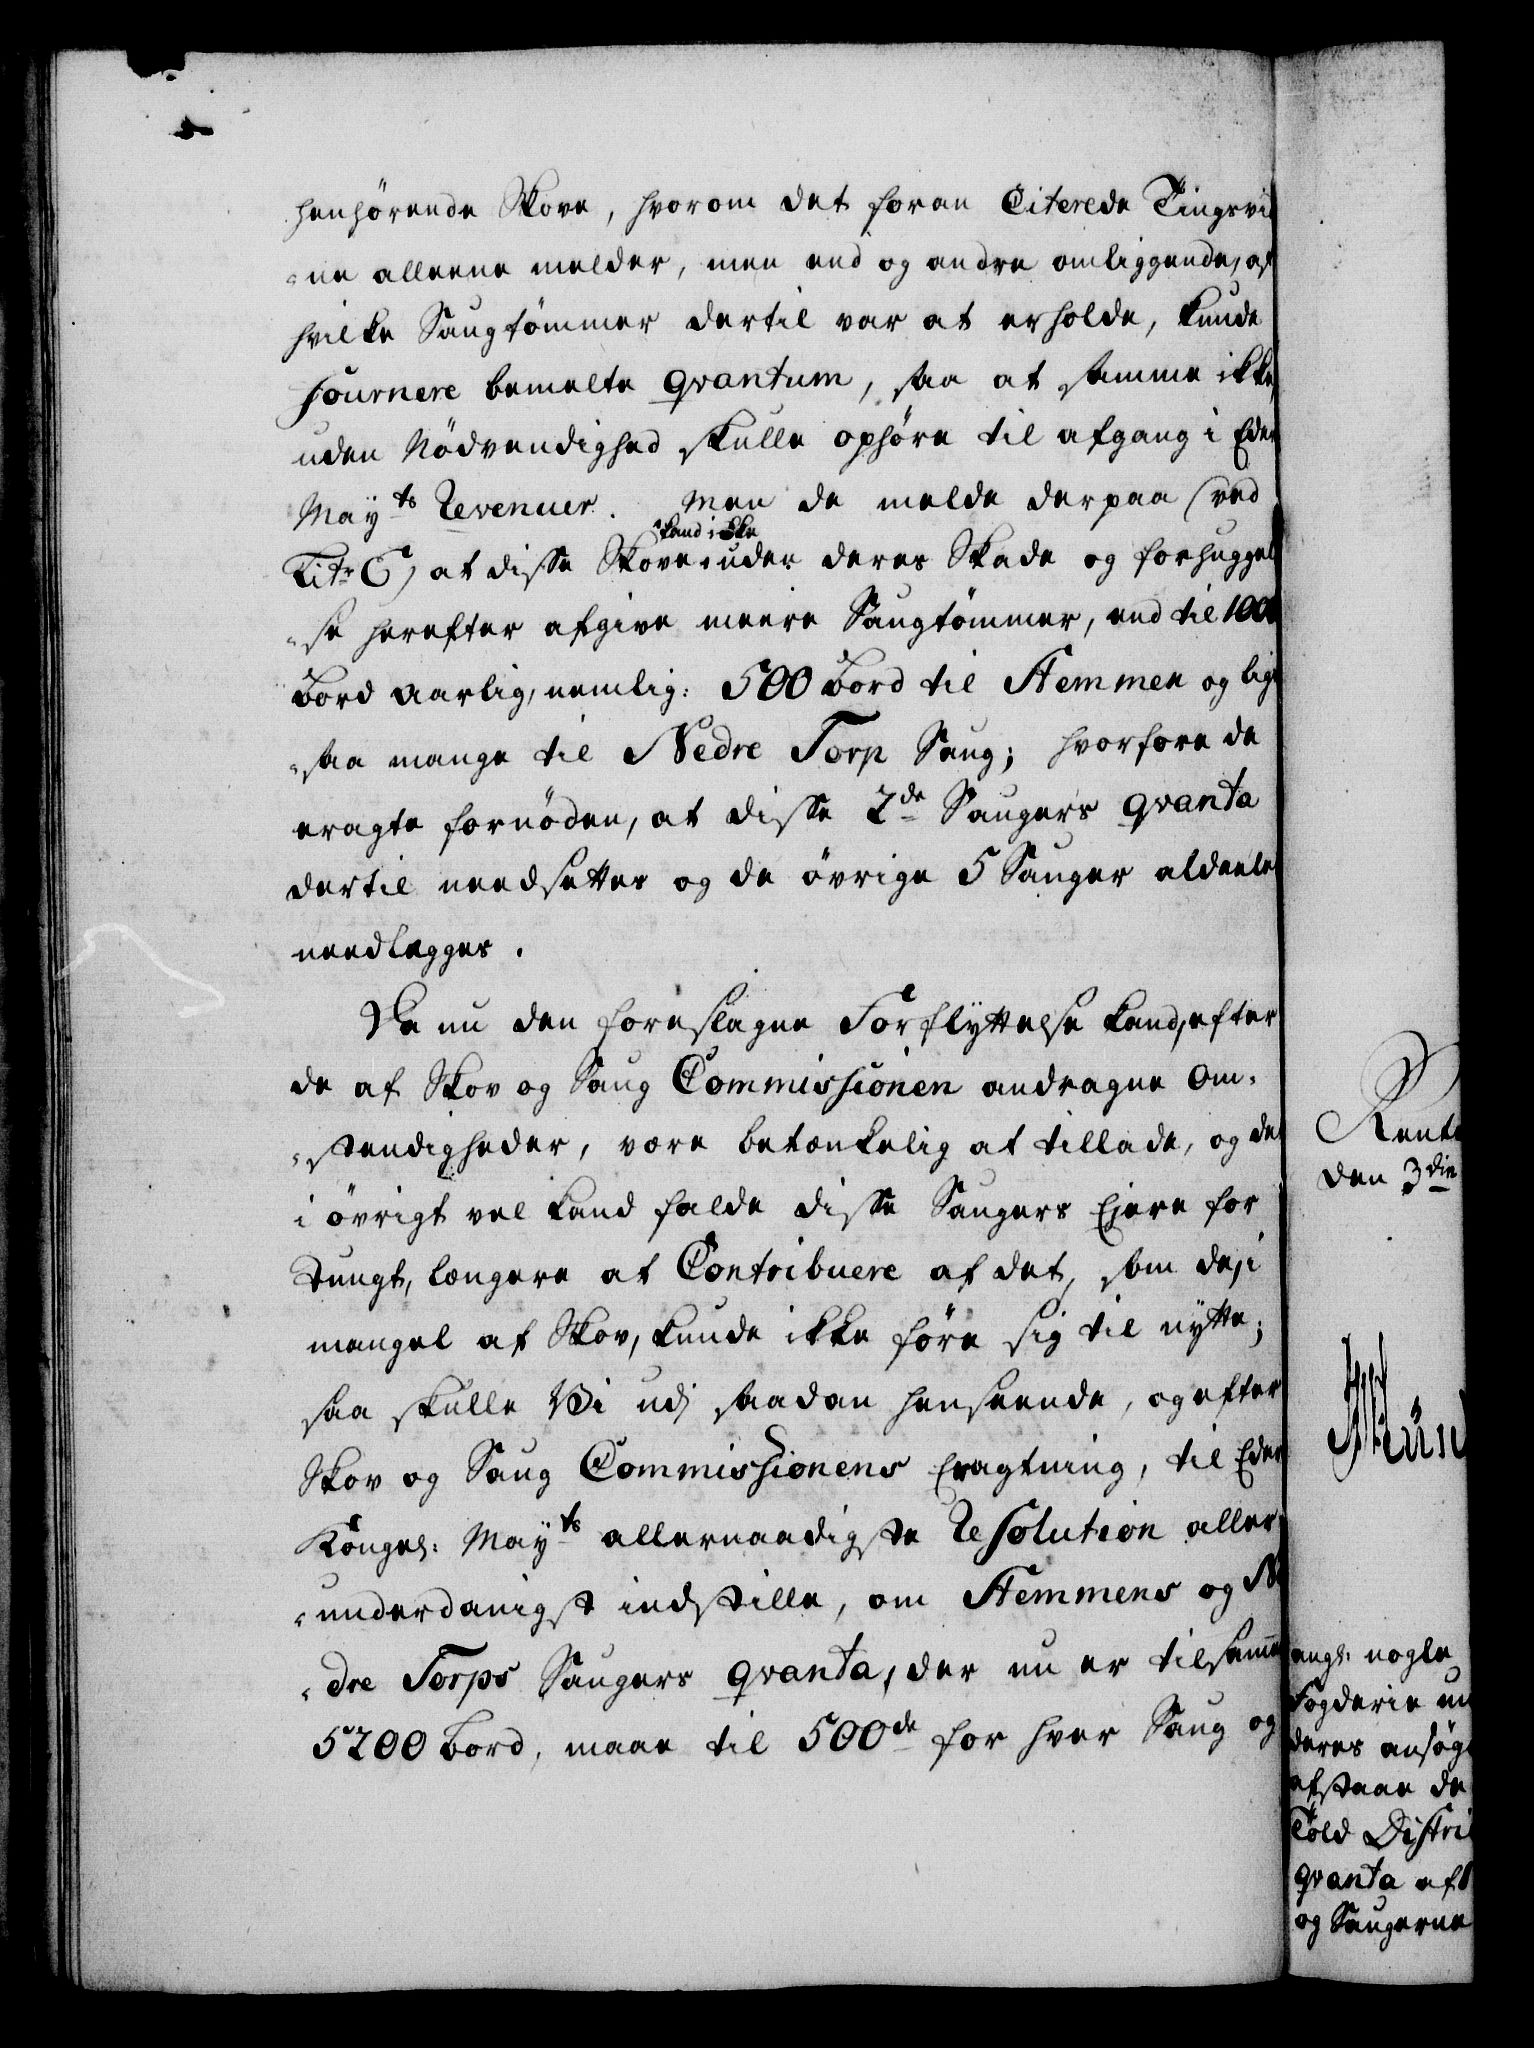 henhörende Skove, hvorom det foran Citerede Tingsvi
-ne alleene melder, men end og andre omliggende, af
hvilke Saugtömmer dertil var at erholde, kunde
fournere bemelte qvantum, saa at samme ikke,
uden Nödvendighed skulle ophöre til afgang i Eder
Mayts Revenuer. Men de melde derpaa (ved
kand ikke
Litr C) at disse Skove uden deres Skade og forhuggel
-se herefter afgive meere Saugtömmer, end til 1000
Bord aarlig, nemlig: 500 Bord til Stemmen og lige
-saa mange til Nedre Torp Saug; hvorfore de
eragte fornöden, at disse 2de Saugers qvanta
dertil needsettes og de övrige 5 Sauger aldeeles
needlegges.
Da nu den foreslagne Forflyttelse kand, efter
de af Skov og Saug Commissionen andragne Om-
-stendigheder, være betænkelig at tillade, og det
i övrigt vel kand falde disse Saugers Ejere for
Tungt, længere at Contribuere af det, som de, i
mangel af Skov, kunde ikke före sig til nytte;
saa skulle Vi udj saadan henseende, og efter
Skov og Saug Commissionens Eragtning, til Eders
Kongel: Mayts allernaadigste Resolution aller-
-underdanigst indstille, om Stemmens og Ne
-dre Torps Saugers qvanta, der nu er tilsamme
5200 Bord, maae til 500de for hver Saug og
Rente
den 3die
engl: nogle
Fogderie un
deres ansög
afstaae de
Told Distri
qvanta af
og Saugerne